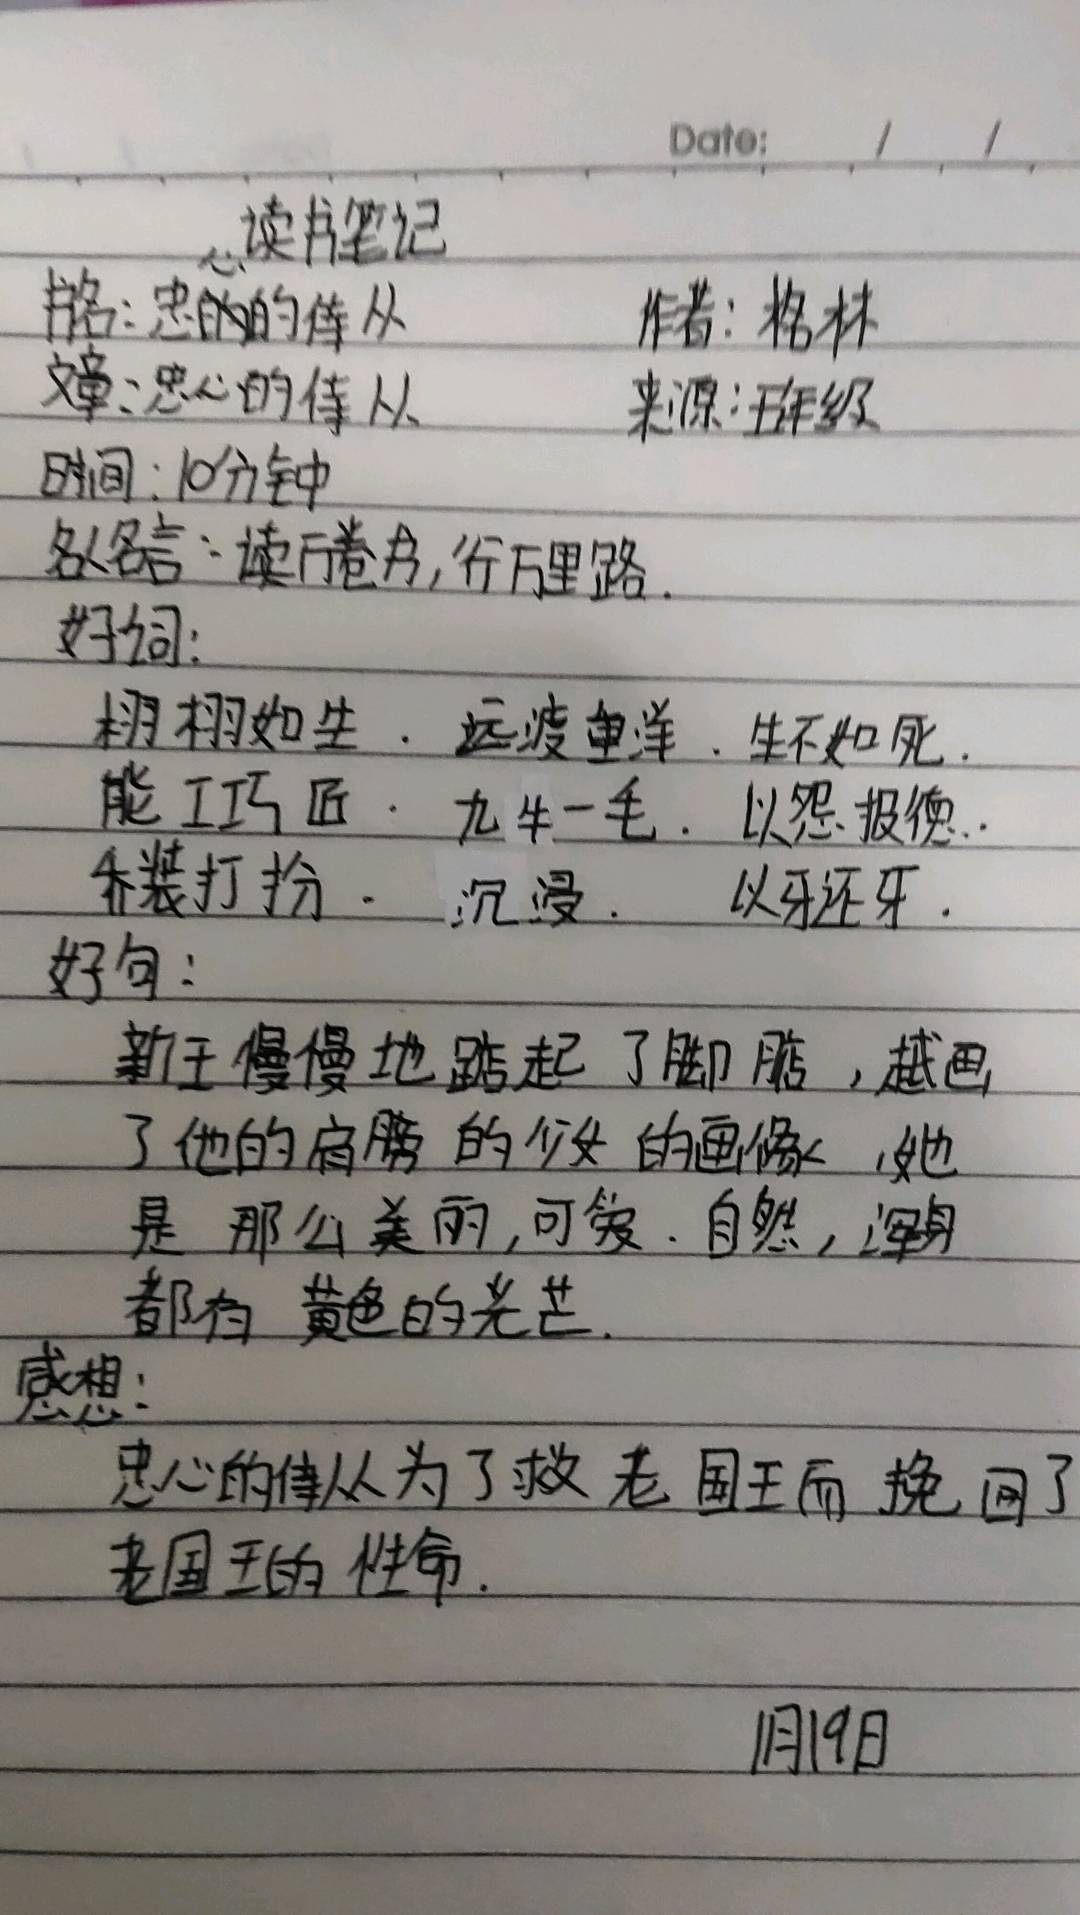 Date: / /
读书笔记
书名：忠心的侍从 作者：格林
文章：忠心的侍从 来源：五年级
时间：10分钟
名人名言：读万卷书，行万里路.
好词：
栩栩如生．远渡重洋．生不如死．
能工巧匠．九牛一毛．以怨报德．
乔装打扮．沉浸．以牙还牙．
好句：
新王慢慢地踮起了脚踮，越过
了他的肩膀的少女的画像，她
是那么美丽，可爱．自然，浑身
都有黄色的光芒．
感想：
忠心的侍从为了救老国王而挽回了
老国王的性命．
1月19日